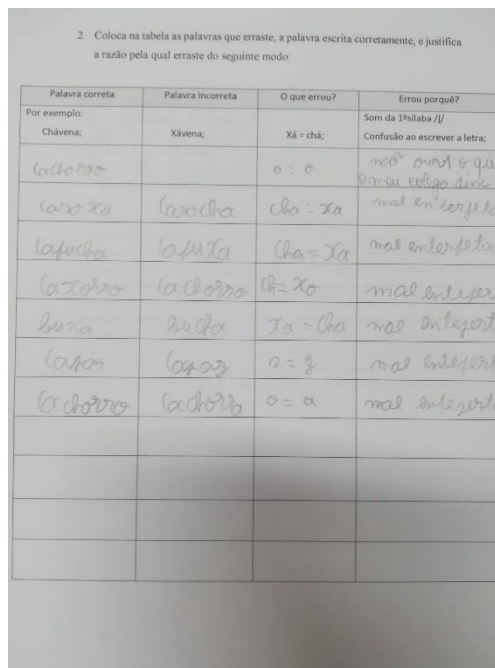 2. Coloca na tabela as palavras que erraste, a palavra escrita corretamente, e justifica
a razão pela qual erraste do seguinte modo:
Palavra correta Palavra incorreta O que errou? Errou porquê?
Por exemplo:
Chávena; Xávena; Xá = chá; Som da 1ªsilaba /ʃ/
Confusão ao escrever a letra;
Cachorro a = o não ouvi o que
o meu colega disse
caroxa Carocha cha = xa mal enterpeta
Capucha Capuxa Cha = Xa mal enterpeta
Caxorro Cachorro Ch = Xo mal enteper
buxa bucha Xa = Cha mal entepert
Capos Capoz s = z mal entepert
Cachorro Cachorra o = a mal entepert